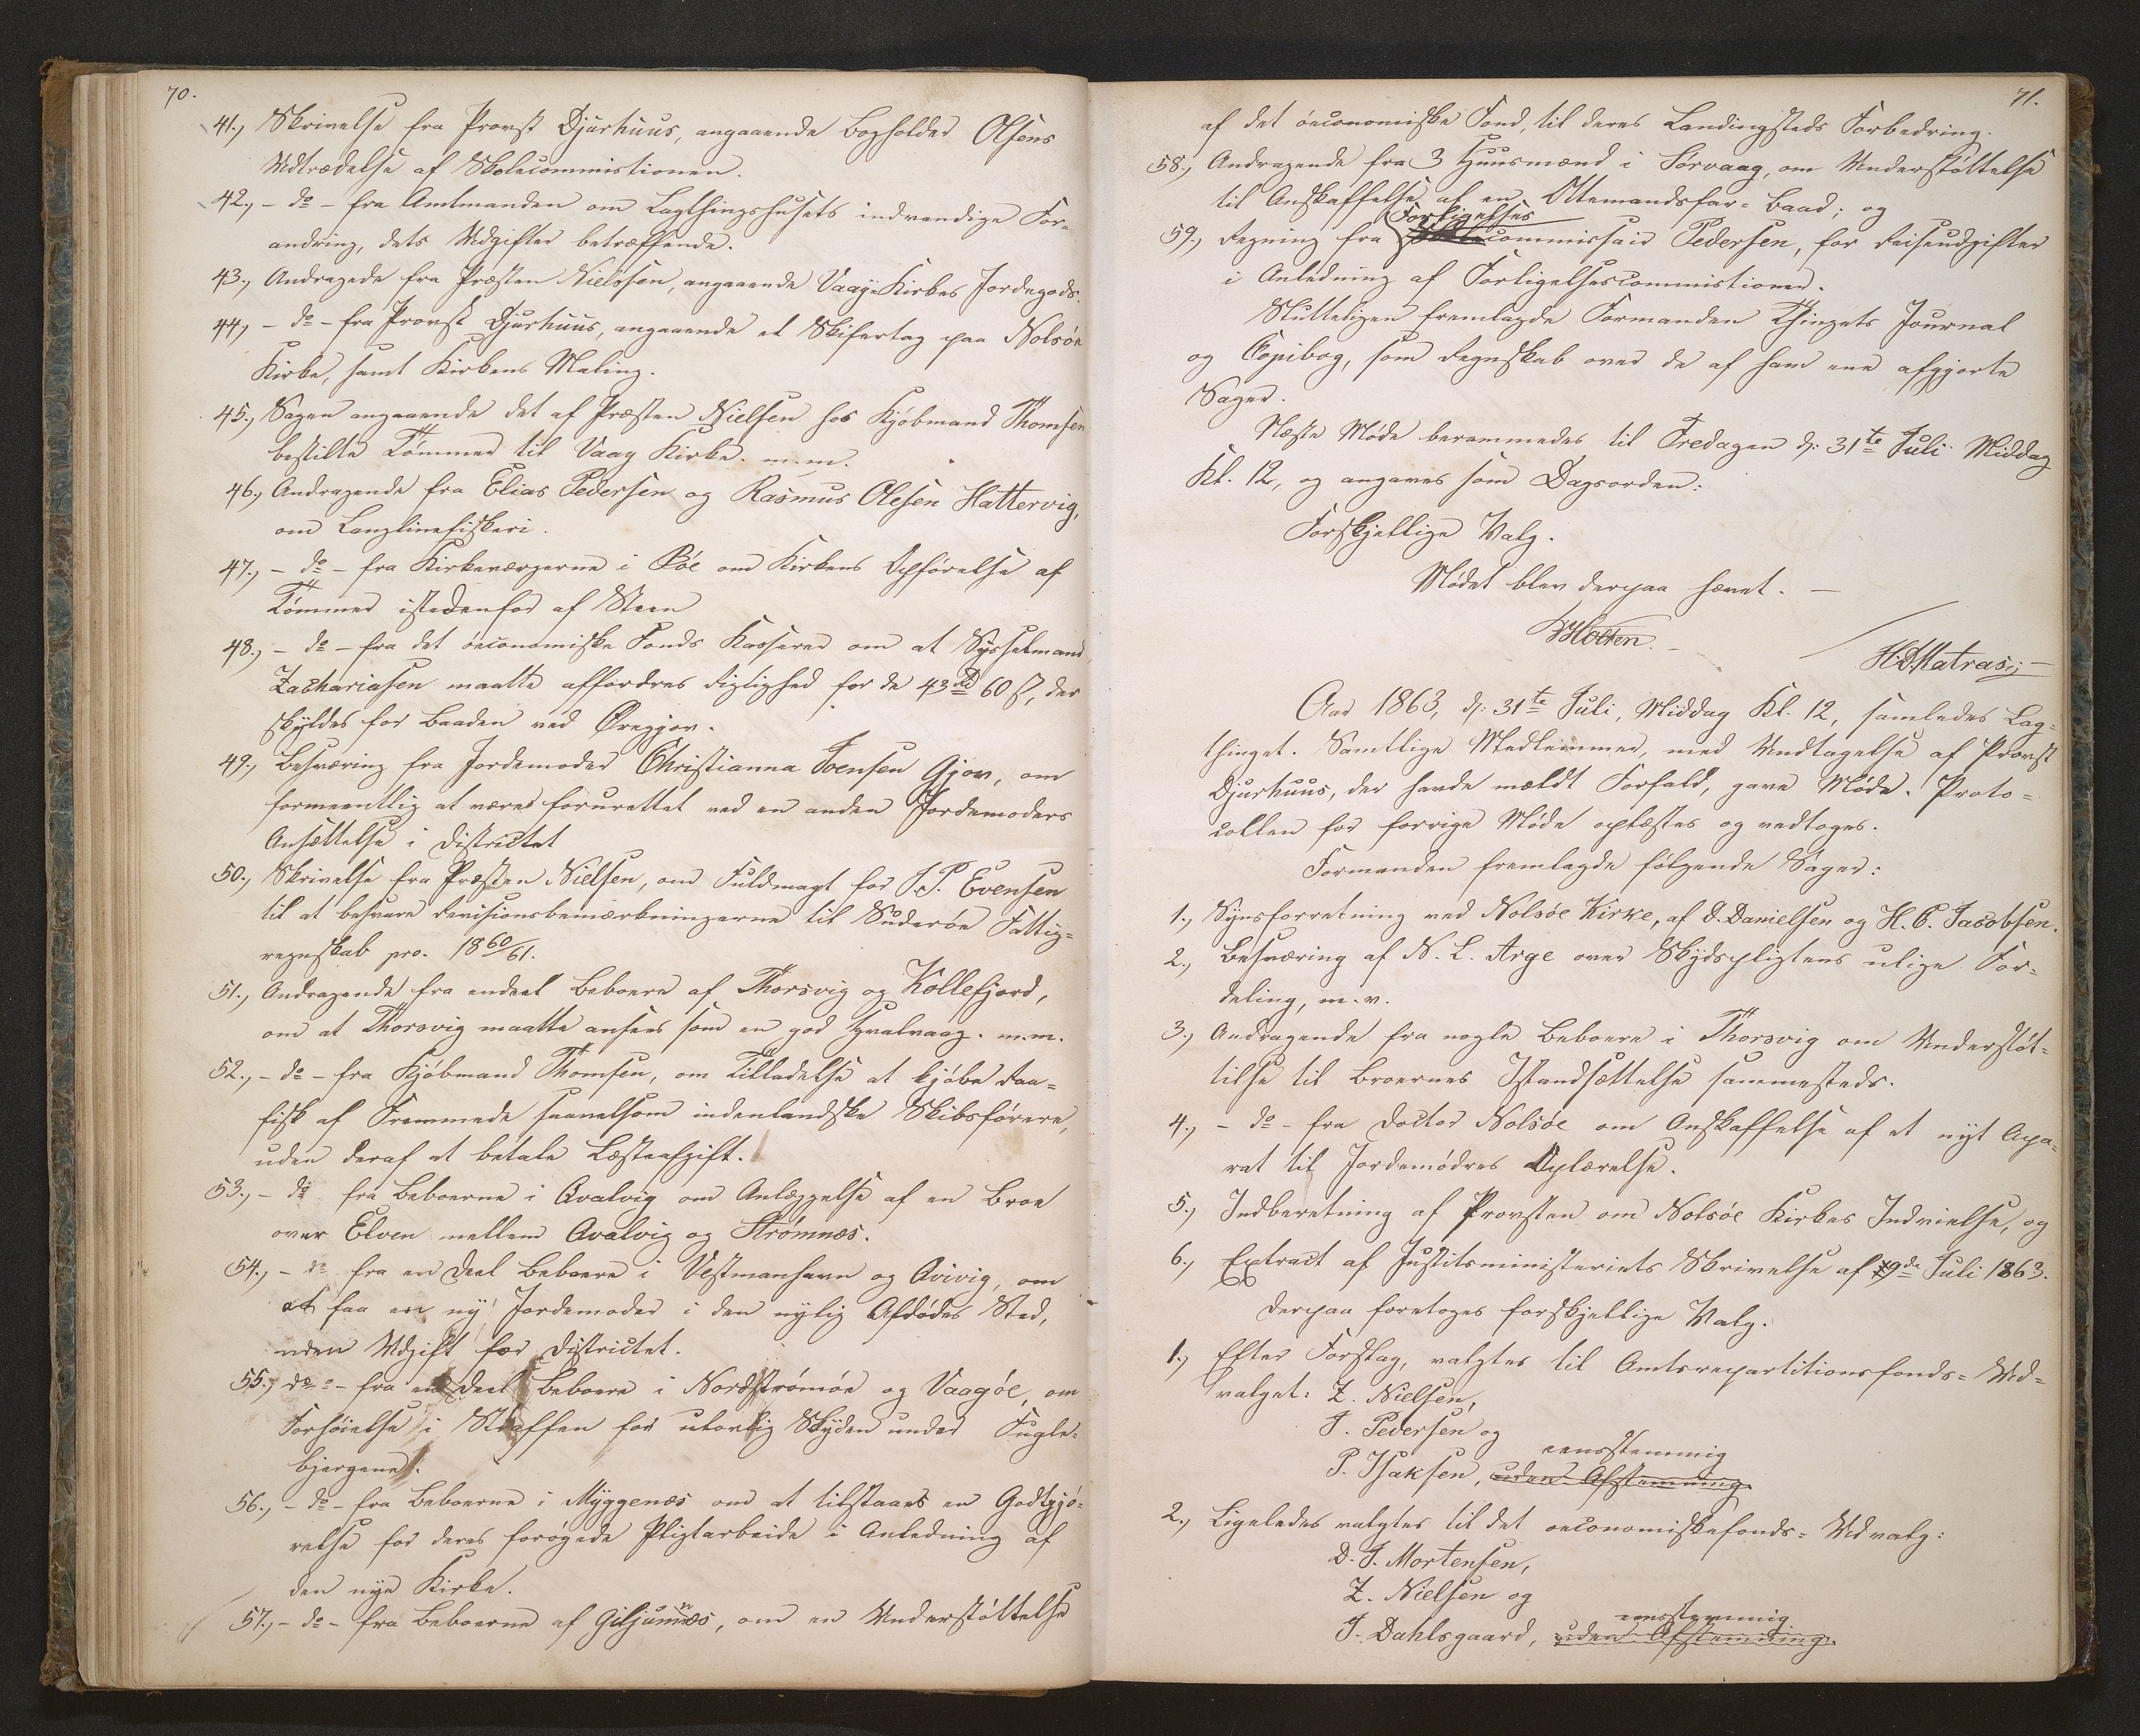 70.
41., Skrivelse fra Provst Djurhuus, angaaende Bogholder Olsens
Udtrædelse af Skolecommissionen.
42., - do - fra Amtmanden om Lagthingshusets indvendige For-
andring, dets Udgifter betræffende.
43., Andragede fra Præsten Nielssen, angaaende Vaags Kirkes Jordegods.
44, - do - fra Provst Djurhuus, angaaende et Skifertag paa Nolsöe
Kirke, samt Kirkens Maling.
45., Sagen angaaende det af Præsten Nielsen hos Kjöbmand Thomsen
bestilte Tömmer til Vaag Kirke. m.m.
46., Andragende fra Elias Pedersen og Rasmus Olesen Hattervig,
om Langlinefiskeri.
47., - do - fra Kirkeværgerne i Böe om Kirkens Opförelse af
Tömmer istedenfor af Steen
48., - do - fra det öeconomiske Fonds Kasserer om at Sysselmand
Zachariasen maatte affordres Rigtighed for de 43 Rd 60 ß, der
skyldes for Baaden ved Öregjov.
49., Besværing fra Jordemoder Christianna Joensen Gjov, om
formeentlig at være forurettet ved en anden Jordemoders
Ansættelse i Districtet
50., Skrivelse fra Præsten Nielsen, om Fuldmagt for J. P. Evensen
til at besvare Revisionsbemærkningerne til Suderöe Fattig-
regnskab pro. 1860/61.
51., Andragende fra endeel Beboere af Thorsvig og Kollefjord,
om at Thorsvig maatte ansees som en god Hvalvaag. m.m.
52., - do - fra Kjöbmand Thomsen, om Tilladelse at kjöbe Raa-
fisk af Fremmede saavelsom indenlandske Skibsförere,
uden deraf at betale Læsteafgift.
53., - do fra Beboerne i Qvalvig om Anlæggelse af en Broe
over Elven mellem Qvalvig og Strömnæs.
54., - do fra en deel Beboere i Vestmanhavn og Qvivig, om
at faa en ny Jordemoder i den nylig Afdödes Sted,
uden Udgift for Districtet.
55., do - fra en deel Beboere i Nordströmöe og Vaagöe, om
Forhöielse i Straffen for ulovlig Skyden under Fugle-
bjergene.
56., - do - fra Beboerne i Myggenæs om at tilstaaes en Godtgjö-
relse for deres forögede Pligtarbeide i Anledning af
den nye Kirke.
57., - do - fra Beboerne af Giljumnæs, om en Understöttelse
71.
af det öeconomiske Fond, til deres Landingsteds Forbedring.
58., Andragende fra 3 Huusmænd i Sörvaag, om Understöttelse
til Anskaffelse af en Ottemandsfar-Baad; og
Forligelses
59., Regning fra commissair Pedersen, for Reiseudgifter
i Anledning af Forligelsescommissionen.
Slutteligen fremlagde Formanden Thingets Journal
og Copibog, som Regnskab over de af ham ene afgjorte
Sager.
Næste Möde berammedes til Fredagen d: 31te Juli Middag
Kl. 12, og angaves som Dagsorden:
Forskjellige Valg.
Mödet blev derpaa hævet. -
Holten.
H. D. Matras;
Aar 1863, d: 31te Juli, Middag Kl. 12, samledes Lag-
thinget. Samtlige Medlemmer, med Undtagelse af Provst
Djurhuus, der havde mældt Forfald, gave Möde. Proto-
collen for forrige Möde oplæstes og vedtoges.
Formanden fremlagde fölgende Sager:
1., Synsforretning ved Nolsöe Kirke, af D. Danielsen og H. C. Jacobsen.
2., Besværing af N. L. Arge over Skydspligtens ulige For-
deling, m.v.
3., Andragende fra nogle Beboere i Thorsvig om Understöt-
telse til Broernes Istandsættelse sammesteds.
4., - do - fra Doctor Nolsöe om Anskaffelse af et nyt Apa-
rat til Jordemödres Oplærelse.
5., Indberetning af Provsten om Nolsöe Kirkes Indvielse, og
6., Extract af Justitsministeriets Skrivelse af 9de Juli 1863.
Derpaa foretoges forskjellige Valg.
1., Efter Forslag, valgtes til Amtsrepartitionsfonds-Ud-
valget: Z. Nielsen,
J. Pedersen og
eensstemmig
P. Isaksen, uden Afstemning
2., Ligeledes valgtes til det oeconomiskefonds-Udvalg:
D. J. Mortensen,
Z. Nielsen og
eensstemmig
J. Dahlsgaard, uden Afstemning